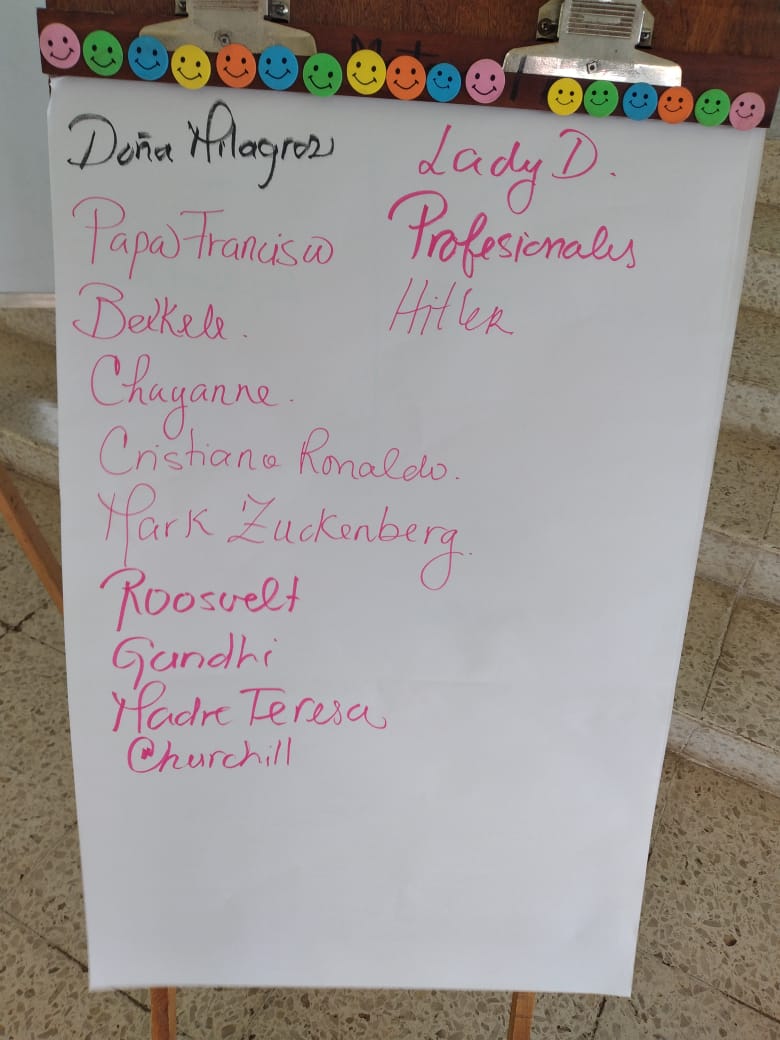 Doña Milagros
Papa Francisco
Beckele.
Chayanne.
Cristiano Ronaldo.
Mark Zuckenberg.
Roosvelt
Gandhi
Madre Teresa
Churchill
Lady D.
Profesionales
Hitler